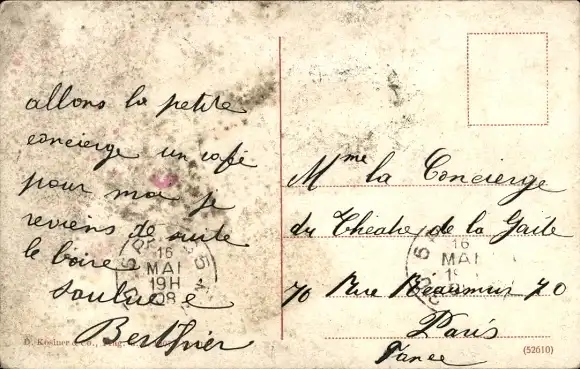 allons la petite
concierge un café
pour moi je
reviens de suite
le boire
Berthier
Mme la Concierge
du Théatre de la Gaite
70 Rue Réaumur 70
Paris
France
16
MAI
19H
08
16
MAI
(52610)